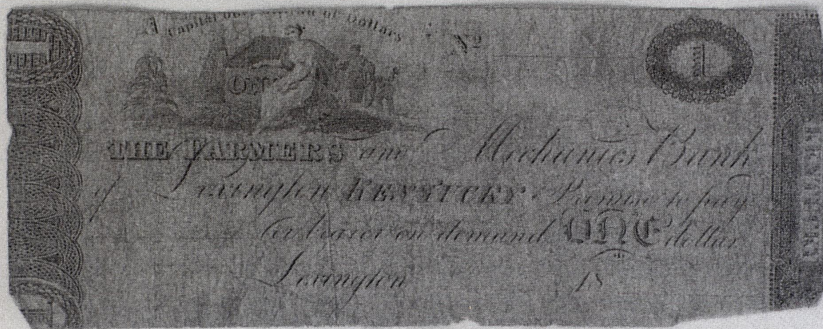 Capital one Million of Dollars
No
1
ONE
THE FARMERS and Mechanics Bank
of Lexington KENTUCKY Promise to pay
or bearer on demand ONE dollar
Lexington 18
KENTUCKY